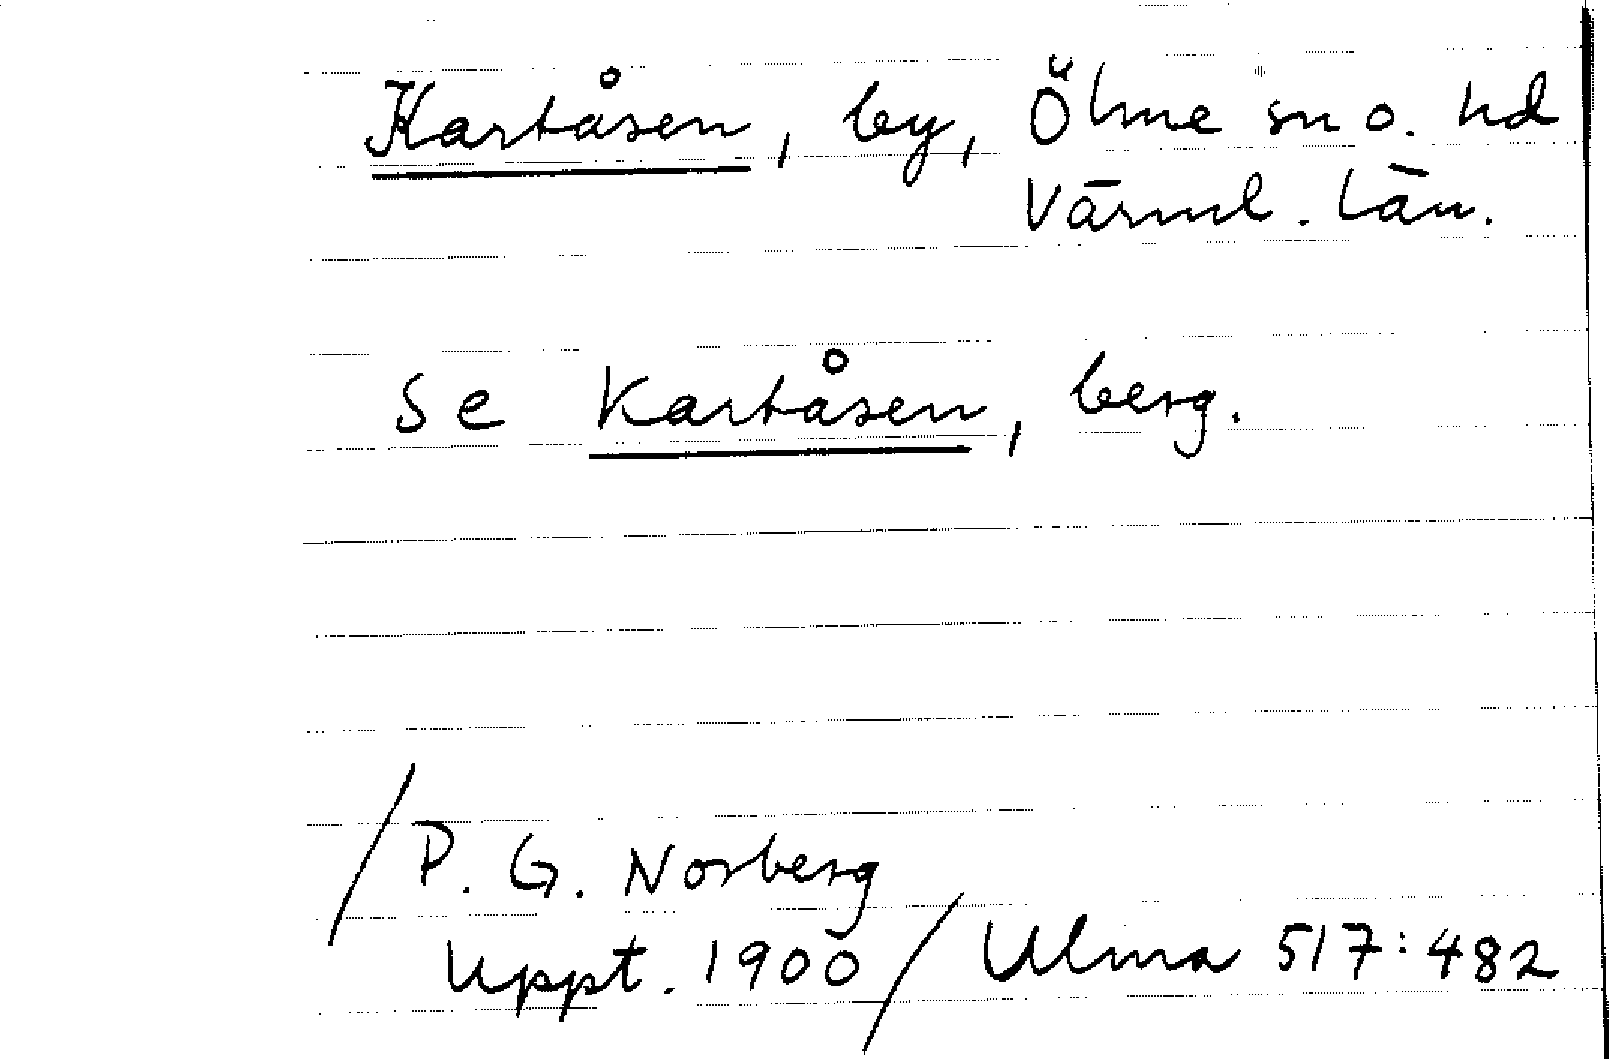 Kartåsen, by, Ölme sn o. hd
Värml. län.
Se Kartåsen, berg.
/P. G. Norberg
Uppt. 1900/ Ulma 517:482